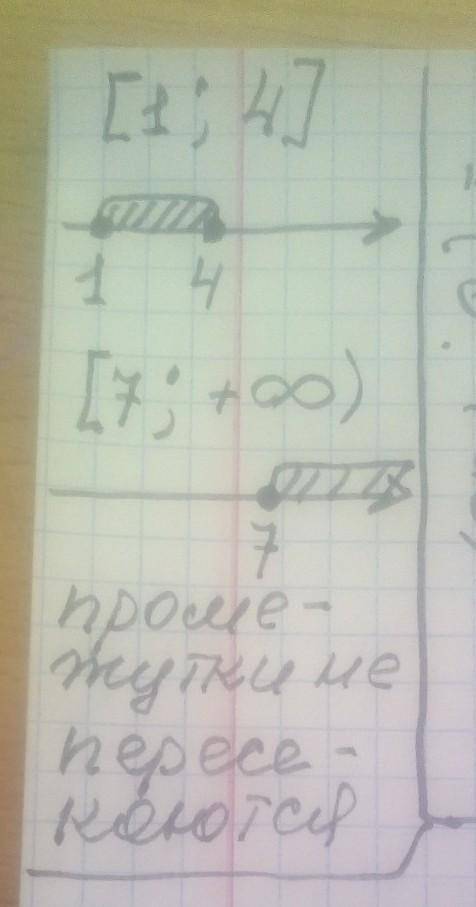 [1; 4]
1 4
[7; +∞)
7
проме-
жутки не
пересе-
каются